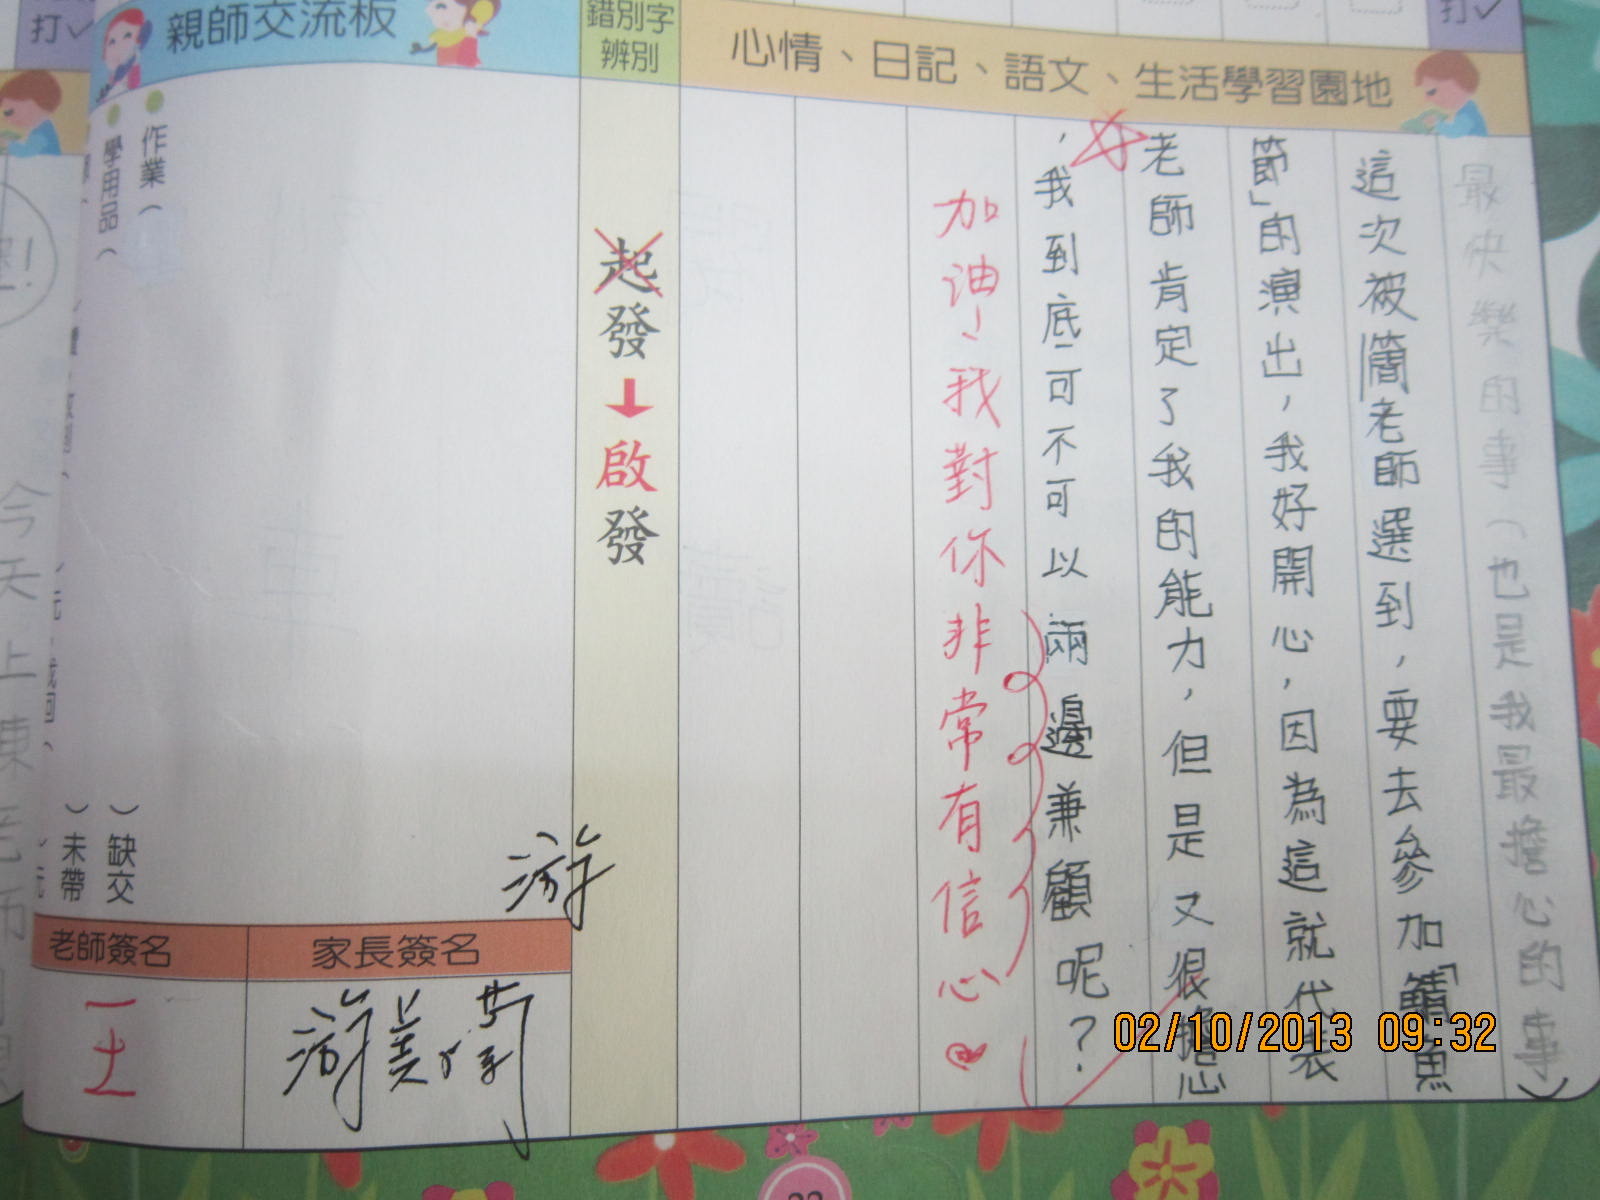 打✓
親師交流板
錯別字
辨別
心情、日記、語文、生活學習園地
打✓
最快樂的事(也是我最擔心的事)
這次被簡老師選到,要去參加「鯖魚
節」的演出,我好開心,因為這就代表
老師肯定了我的能力,但是又很擔心
,我到底可不可以兩邊兼顧呢?
加油!我對你非常有信心
起發→啟發
作業(
)缺交
學用品(
)未帶
今天上
游
老師簽名
家長簽名
王
游美蘭
02/10/2013 09:32